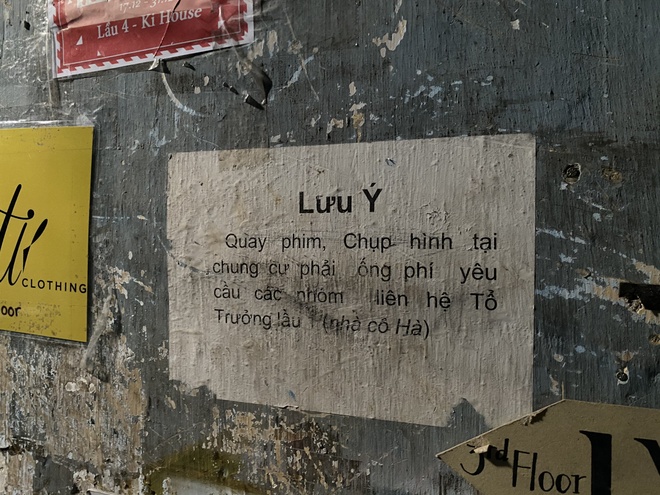 17.12 - 31.
Lầu 4 - Ki House
CLOTHING
Lưu Ý
Quay phim, Chụp hình tại
chung cư phải ống phí yêu
cầu các nhóm liên hệ Tổ
Trưởng lầu (nhà cô Hà)
3rd Floor